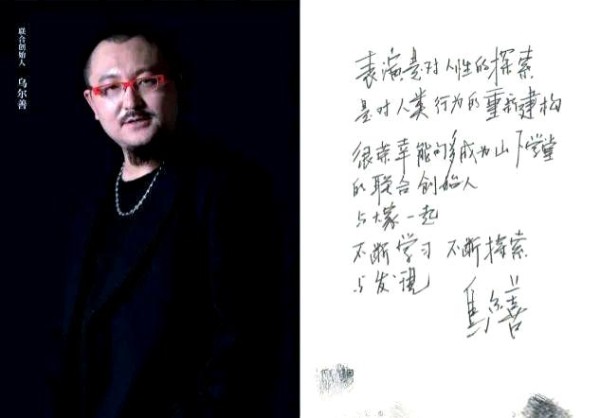 联合创始人 乌尔善
表演是对人性的探索
是对人类行为的重新建构
很荣幸能够成为山下学堂
的联合创始人
与大家一起
不断学习 不断探索
与发现
乌尔善